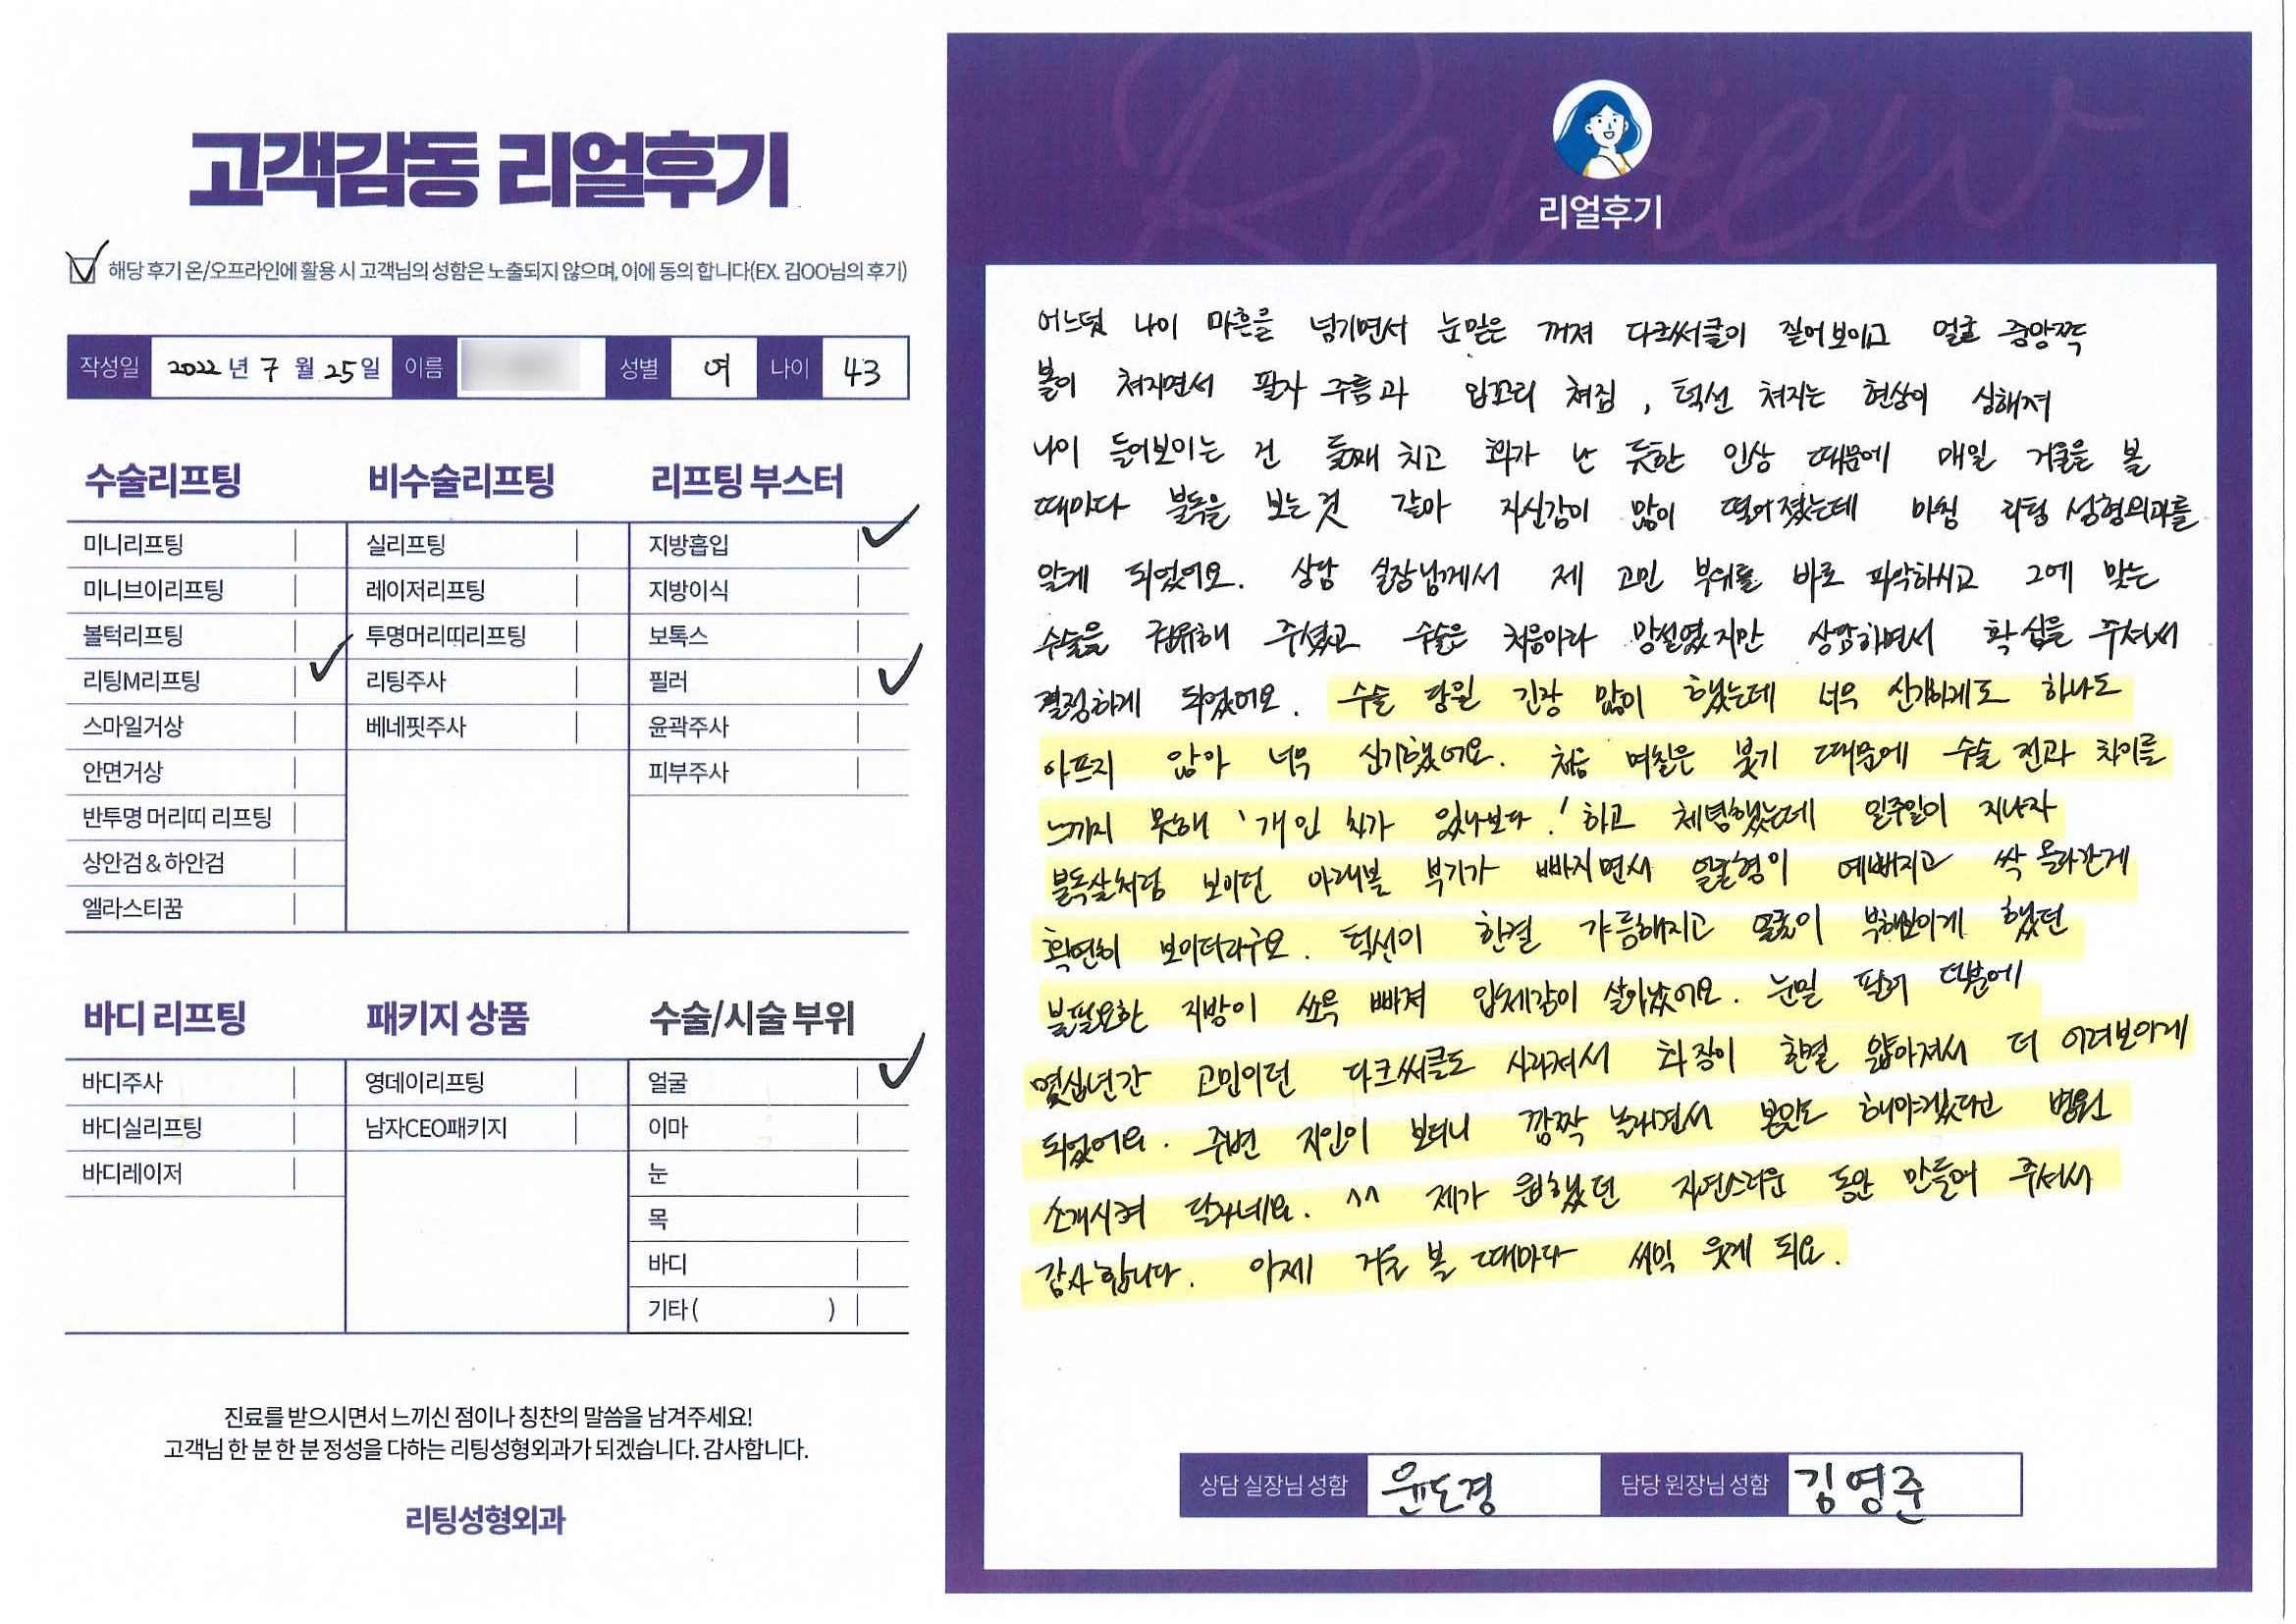 고객감동 리얼후기
해당 후기 온/오프라인에 활용 시 고객님의 성함은 노출되지 않으며, 이에 동의 합니다(EX. 김OO님의 후기)
작성일 2022 년 7 월 25 일 이름 성별 여 나이 43
수술리프팅
미니리프팅
미니브이리프팅
볼턱리프팅
리팅M리프팅
스마일거상
안면거상
반투명 머리띠 리프팅
상안검&하안검
엘라스티꿈
비수술리프팅
실리프팅
레이저리프팅
투명머리띠리프팅
리팅주사
베네핏주사
리프팅 부스터
지방흡입
지방이식
보톡스
필러
윤곽주사
피부주사
바디 리프팅
바디주사
바디실리프팅
바디레이저
패키지 상품
영데이리프팅
남자CEO패키지
수술/시술 부위
얼굴
이마
눈
목
바디
기타 ( )
진료를 받으시면서 느끼신 점이나 칭찬의 말씀을 남겨주세요!
고객님 한 분 한 분 정성을 다하는 리팅성형외과가 되겠습니다. 감사합니다.
리팅성형외과
Review
리얼후기
어느덧 나이 마흔을 넘기면서 눈밑은 꺼져 다크써클이 짙어보이고 얼굴 중앙쪽
볼이 쳐지면서 팔자 주름과 입꼬리 쳐짐, 턱선 쳐지는 현상이 심해져
나이 들어보이는 건 둘째 치고 화가 난 듯한 인상 때문에 매일 거울을 볼
때마다 불독을 보는것 같아 자신감이 많이 떨어졌는데 마침 리팅 성형외과를
알게 되었어요. 상담 실장님께서 제 고민 부위를 바로 파악하시고 그에 맞는
수술을 권유해 주셨고 수술은 처음이라 망설였지만 상담하면서 확신을 주셔서
결정하게 되었어요. 수술 당일 긴장 많이 했는데 너무 신기하게도 하나도
아프지 않아 너무 신기했어요. 처음 며칠은 붓기 때문에 수술 전과 차이를
느끼지 못해 '개인 차가 있나보다.' 하고 체념했는데 일주일이 지나자
불독살처럼 보이던 아래볼 부기가 빠지면서 얼굴형이 예뻐지고 싹 올라간게
확연히 보이더라구요. 턱선이 한결 갸름해지고 얼굴이 부해보이게 했던
불필요한 지방이 쏘옥 빠져 입체감이 살아났어요. 눈밑 필러 덕분에
몇십년간 고민이던 다크써클도 사라져서 화장이 한결 얇아져서 더 어려보이게
되었어요. 주변 지인이 보더니 깜짝 놀래면서 본인도 해야겠다고 병원
소개시켜 달라네요. ^^ 제가 원했던 자연스러운 동안 만들어 주셔서
감사합니다. 이제 거울 볼 때마다 씨익 웃게 되요.
상담 실장님 성함 윤도경 담당 원장님 성함 김영준